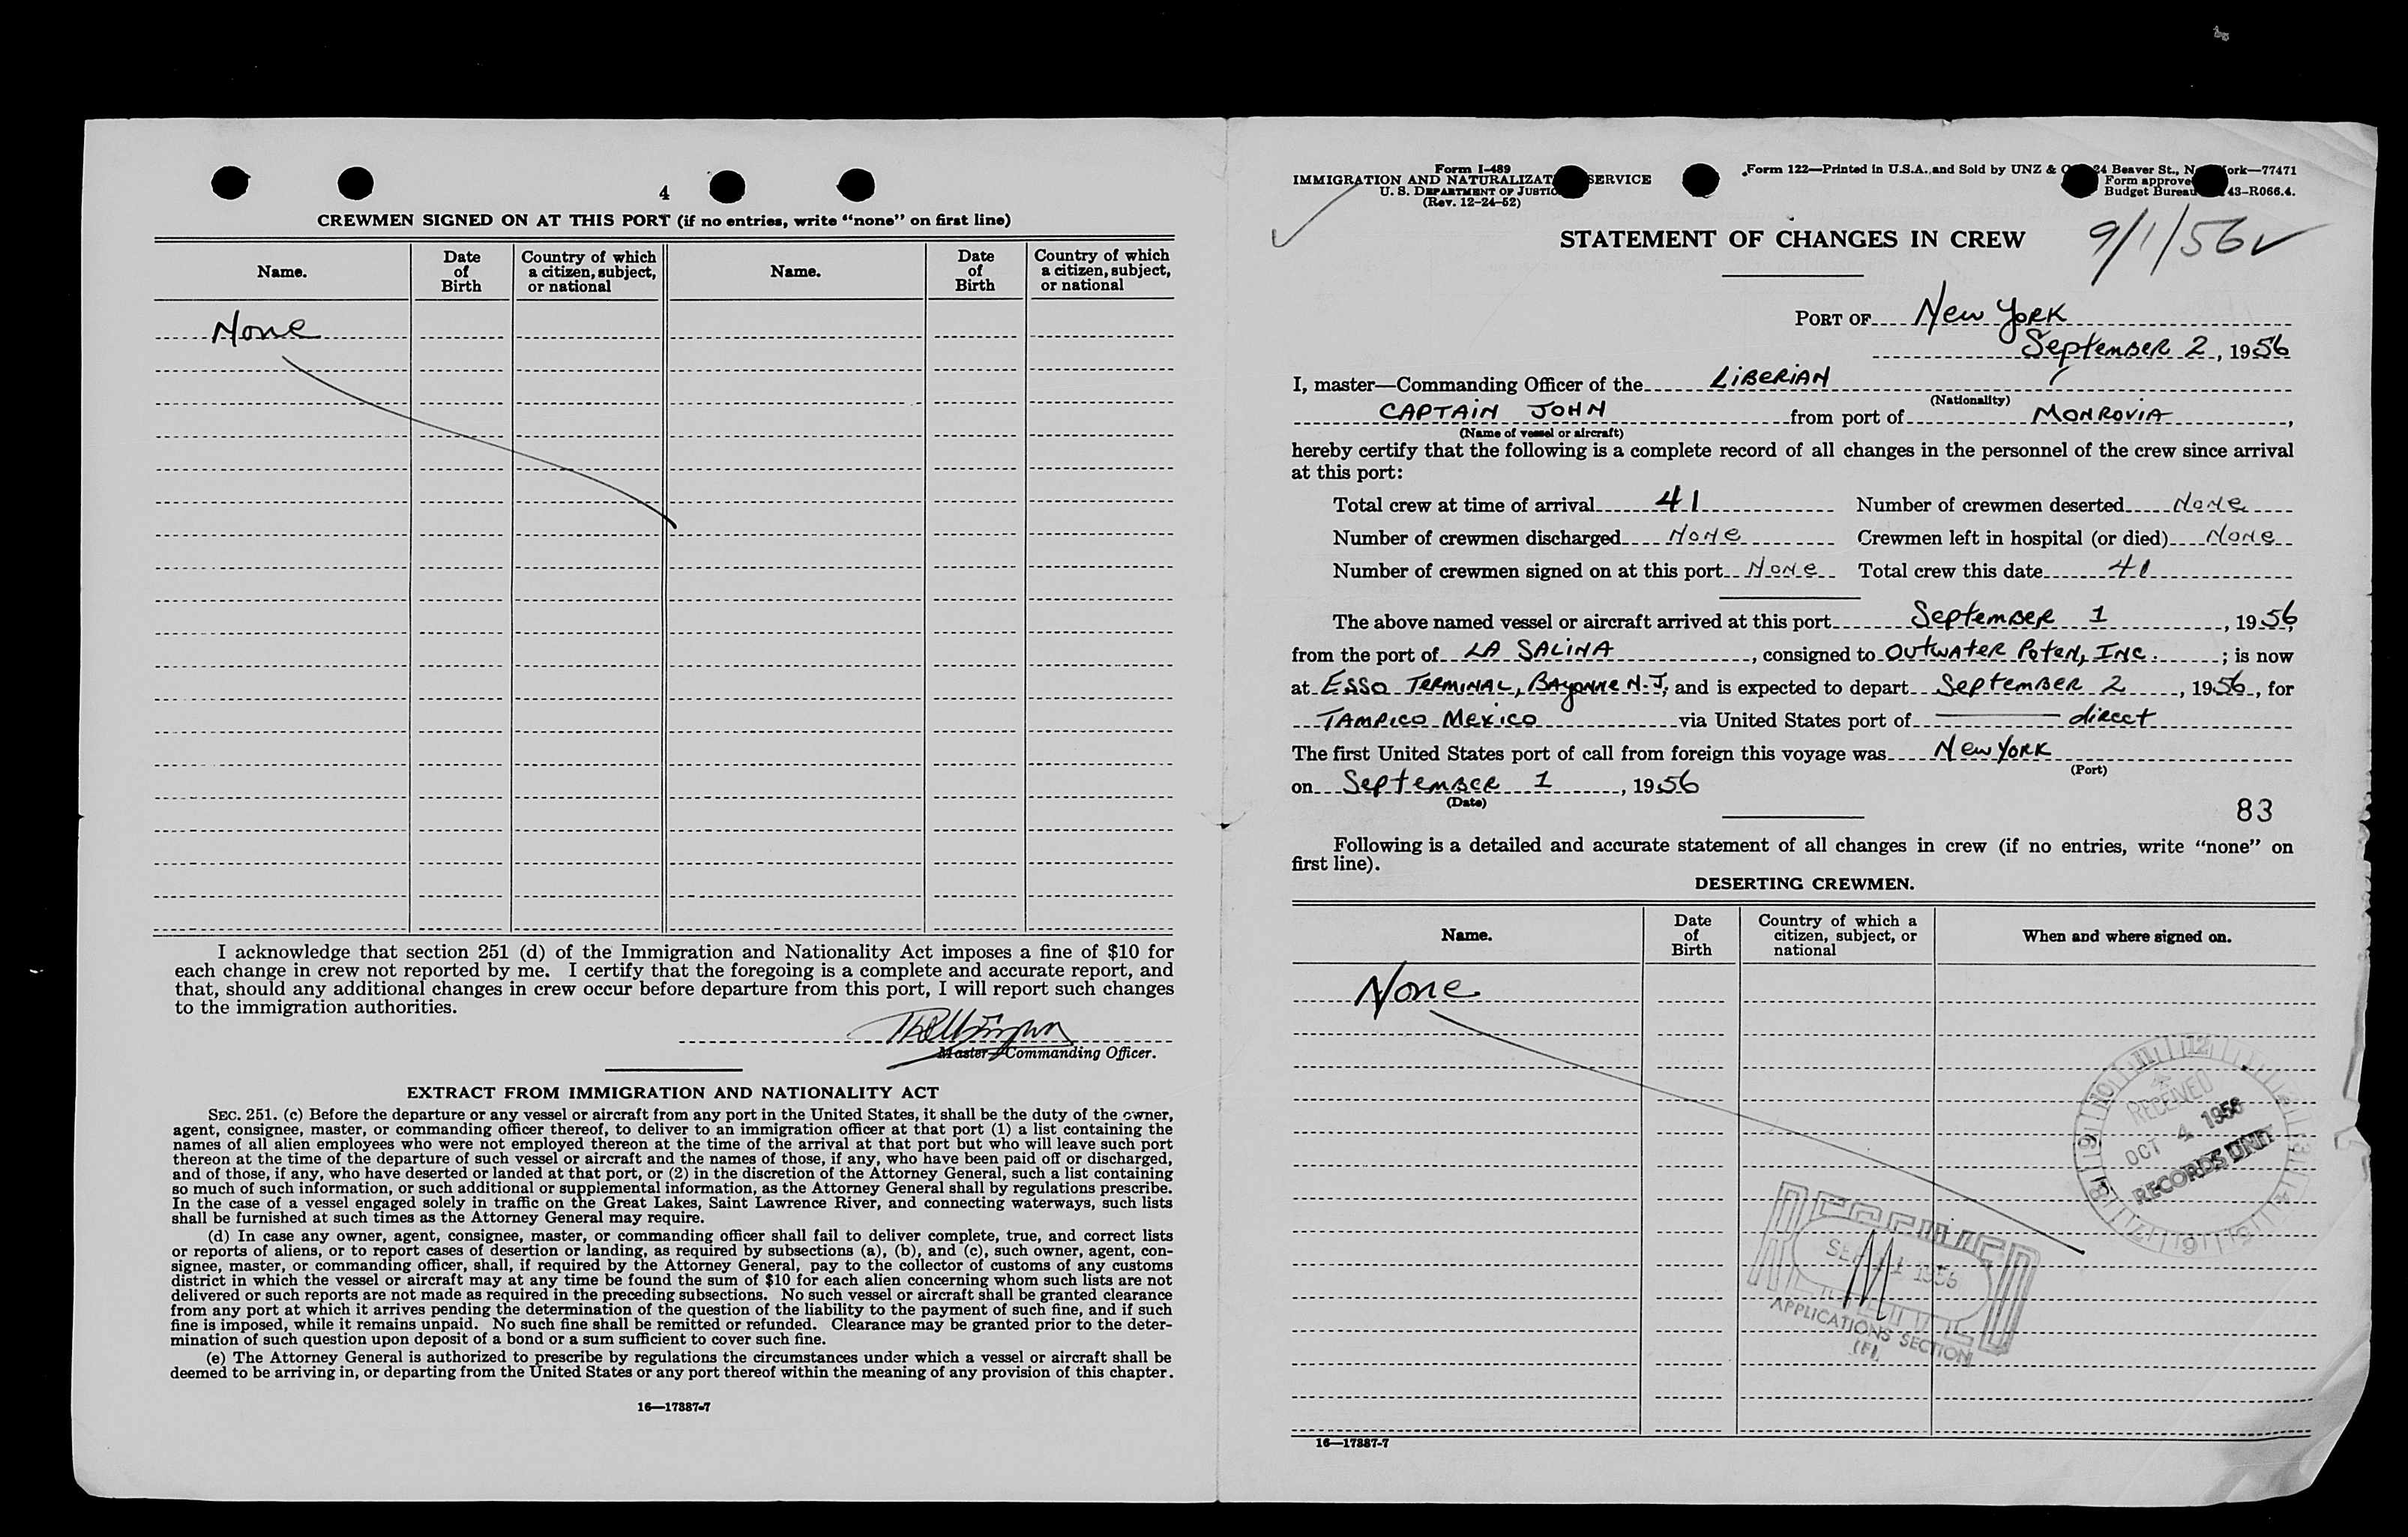 4
CREWMEN SIGNED ON AT THIS PORT (if no entries, write “none” on first line)
Name. Date of Birth Country of which a citizen, subject, or national Name. Date of Birth Country of which a citizen, subject, or national
None
I acknowledge that section 251 (d) of the Immigration and Nationality Act imposes a fine of $10 for
each change in crew not reported by me. I certify that the foregoing is a complete and accurate report, and
that, should any additional changes in crew occur before departure from this port, I will report such changes
to the immigration authorities.
Master—Commanding Officer.
EXTRACT FROM IMMIGRATION AND NATIONALITY ACT
SEC. 251. (c) Before the departure or any vessel or aircraft from any port in the United States, it shall be the duty of the owner,
agent, consignee, master, or commanding officer thereof, to deliver to an immigration officer at that port (1) a list containing the
names of all alien employees who were not employed thereon at the time of the arrival at that port but who will leave such port
thereon at the time of the departure of such vessel or aircraft and the names of those, if any, who have been paid off or discharged,
and of those, if any, who have deserted or landed at that port, or (2) in the discretion of the Attorney General, such a list containing
so much of such information, or such additional or supplemental information, as the Attorney General shall by regulations prescribe.
In the case of a vessel engaged solely in traffic on the Great Lakes, Saint Lawrence River, and connecting waterways, such lists
shall be furnished at such times as the Attorney General may require.
(d) In case any owner, agent, consignee, master, or commanding officer shall fail to deliver complete, true, and correct lists
or reports of aliens, or to report cases of desertion or landing, as required by subsections (a), (b), and (c), such owner, agent, con-
signee, master, or commanding officer, shall, if required by the Attorney General, pay to the collector of customs of any customs
district in which the vessel or aircraft may at any time be found the sum of $10 for each alien concerning whom such lists are not
delivered or such reports are not made as required in the preceding subsections. No such vessel or aircraft shall be granted clearance
from any port at which it arrives pending the determination of the question of the liability to the payment of such fine, and if such
fine is imposed, while it remains unpaid. No such fine shall be remitted or refunded. Clearance may be granted prior to the deter-
mination of such question upon deposit of a bond or a sum sufficient to cover such fine.
(e) The Attorney General is authorized to prescribe by regulations the circumstances under which a vessel or aircraft shall be
deemed to be arriving in, or departing from the United States or any port thereof within the meaning of any provision of this chapter.
16—17887-7
Form I-489
IMMIGRATION AND NATURALIZAT SERVICE
U. S. DEPARTMENT OF JUSTIC
(Rev. 12-24-52)
Form 122—Printed in U.S.A. and Sold by UNZ & C 24 Beaver St., N ork—77471
Form approve
Budget Bureau 43-R066.4.
STATEMENT OF CHANGES IN CREW
9/1/56
PORT OF New York
September 2, 1956
I, master—Commanding Officer of the LIBERIAN
(Nationality)
CAPTAIN JOHN from port of MONROVIA,
(Name of vessel or aircraft)
hereby certify that the following is a complete record of all changes in the personnel of the crew since arrival
at this port:
Total crew at time of arrival 41 Number of crewmen deserted None
Number of crewmen discharged None Crewmen left in hospital (or died) None
Number of crewmen signed on at this port None Total crew this date 41
The above named vessel or aircraft arrived at this port September 1, 1956
from the port of LA SALINA, consigned to Outwater Poten, Inc.; is now
at ESSO TERMINAL, BAYONNE N.J, and is expected to depart September 2, 1956, for
TAMPICO MEXICO via United States port of direct
The first United States port of call from foreign this voyage was New York
(Port)
on September 1, 1956
(Date)
83
Following is a detailed and accurate statement of all changes in crew (if no entries, write “none” on
first line).
DESERTING CREWMEN.
Name. Date of Birth Country of which a citizen, subject, or national When and where signed on.
None
RECEIVED
OCT 4 1956
RECORDS UNIT
1956
APPLICATIONS SECTION
(F)
16—17887-7